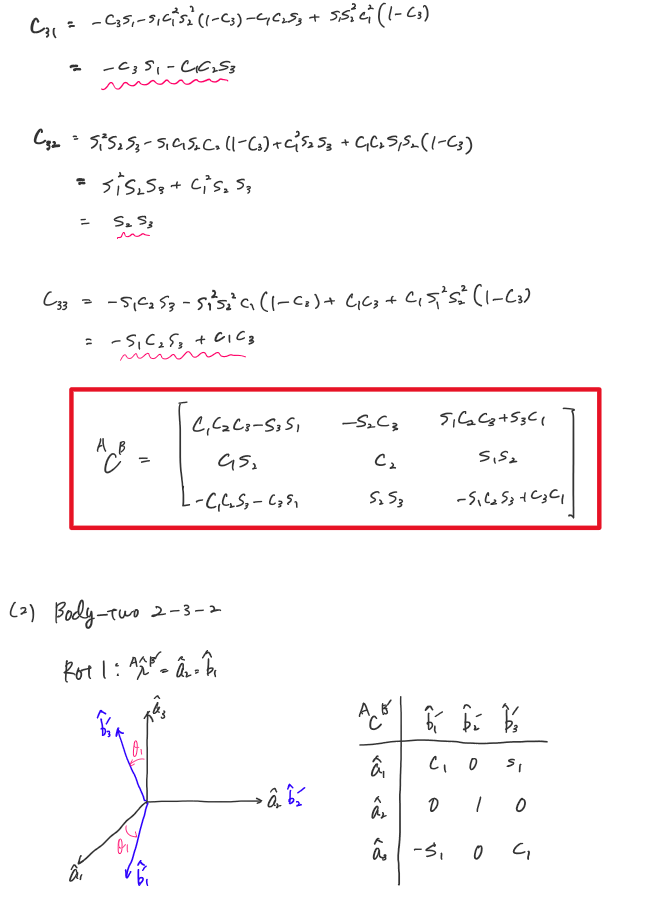 C₃₁ = -C₃S₁-S₁C₁²S₂²(1-C₃)-C₁C₂S₃ + S₁S₂²C₁²(1-C₃)
= -C₃S₁-C₁C₂S₃
C₃₂ = S₁²S₂S₃-S₁C₁S₂C₂(1-C₃)+C₁²S₂S₃ + C₁C₂S₁S₂(1-C₃)
= S₁²S₂S₃ + C₁²S₂S₃
= S₂S₃
C₃₃ = -S₁C₂S₃-S₁²S₂²C₁(1-C₃)+ C₁C₃ + C₁S₁²S₂²(1-C₃)
= -S₁C₂S₃ + C₁C₃
C₁C₂C₃-S₃S₁ -S₂C₃ S₁C₂C₃+S₃C₁
ᴬCᴮ = C₁S₂ C₂ S₁S₂
-C₁C₂S₃-C₃S₁ S₂S₃ -S₁C₂S₃+C₃C₁
(2) Body-two 2-3-2
Rot 1: ᴬλ̂ᴮ' = â₂ = b̂₁
â₃
b̂₃'
θ₁
â₂ b̂₂'
θ₁
â₁ b̂₁'
ᴬCᴮ' b̂₁' b̂₂' b̂₃'
â₁ C₁ 0 S₁
â₂ 0 1 0
â₃ -S₁ 0 C₁